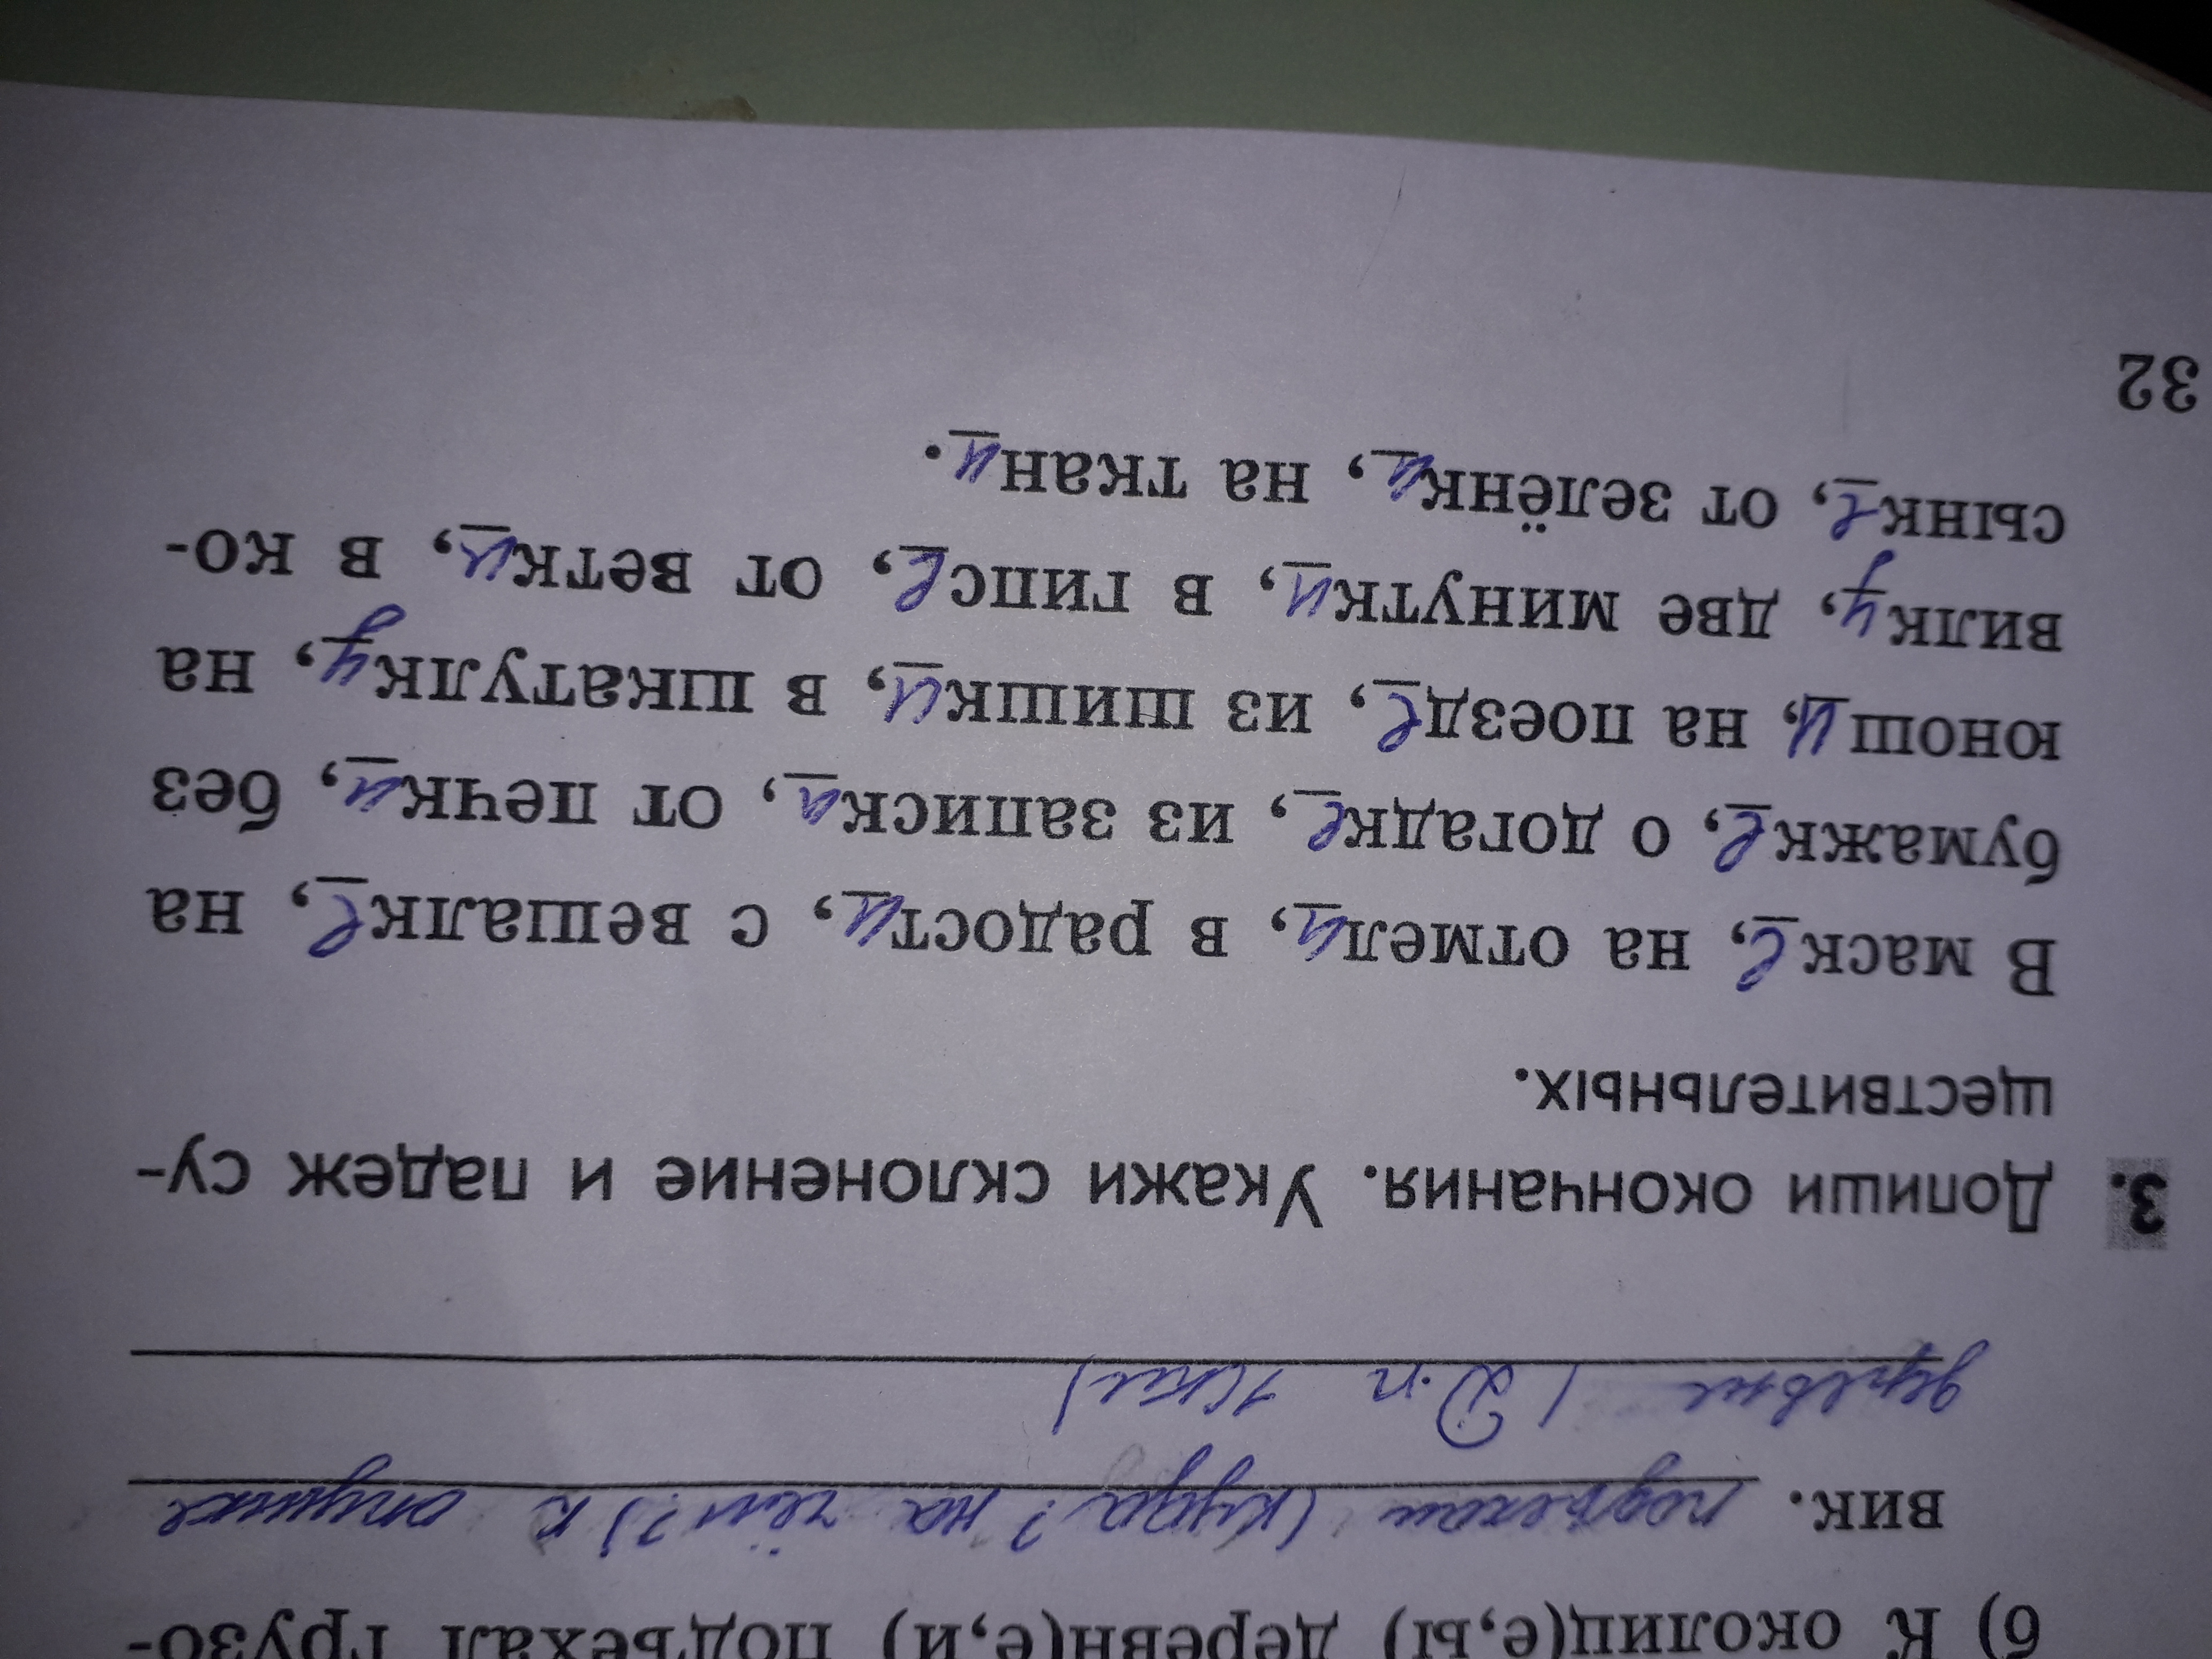 б) К околиц(е,ы) деревн(е,и) подъехал грузо-
вик. подъехал (куда? на чём?) к опушке
деревне (Д.п 1скл)
3. Допиши окончания. Укажи склонение и падеж су-
ществительных.
В маске, на отмели, в радости, с вешалке, на
бумажке, о догадке, из записки, от печки, без
юноши, на поезде, из шишки, в шкатулку, на
вилку, две минутки, в гипсе, от ветки, в ко-
сынке, от зелёнки, на ткани.
32